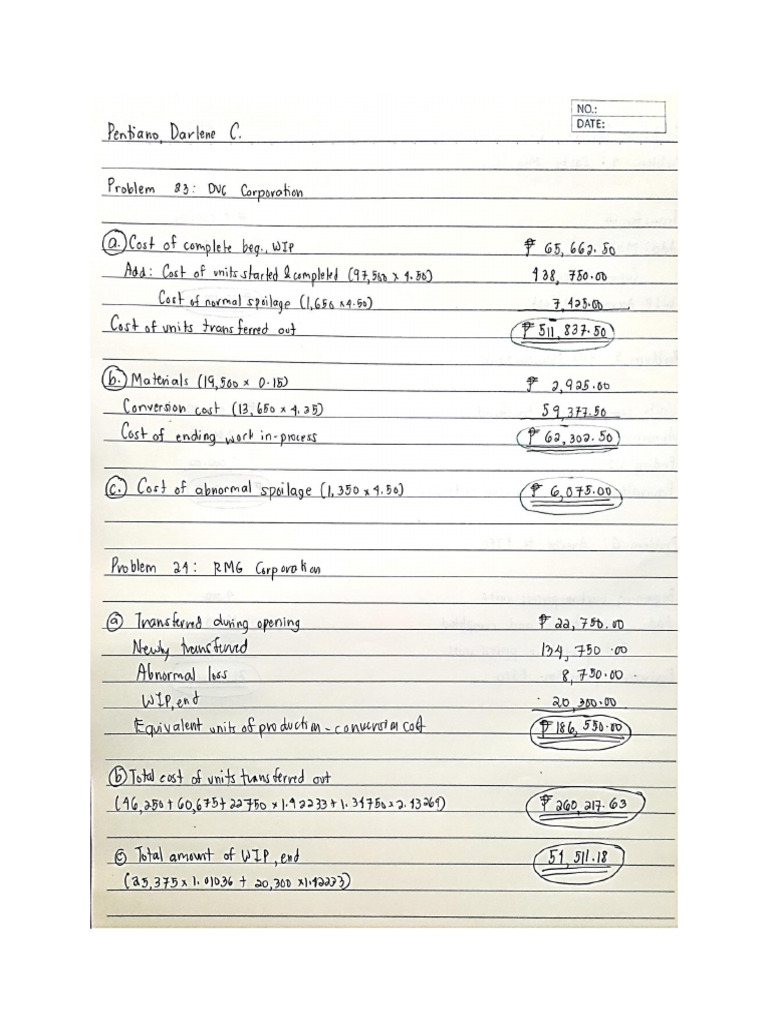 NO.:
DATE:
Pentiano, Darlene C.
Problem 23: DVC Corporation
a. Cost of complete beg., WIP ₱ 65,662.50
Add: Cost of units started & completed (97,500 x 4.50) 438,750.00
Cost of normal spoilage (1,650 x 4.50) 7,425.00
Cost of units transferred out ₱ 511,837.50
b. Materials (19,500 x 0.15) ₱ 2,925.00
Conversion cost (13,650 x 4.35) 59,377.50
Cost of ending work in-process ₱ 62,302.50
c. Cost of abnormal spoilage (1,350 x 4.50) ₱ 6,075.00
Problem 24: RMG Corporation
a Transferred during opening ₱ 22,750.00
Newly transferred 134,750.00
Abnormal loss 8,750.00
WIP, end 20,300.00
Equivalent units of production - conversion cost ₱ 186,550.00
b Total cost of units transferred out
(46,250 + 60,675 + 22750 x 1.42233 + 1.34750 x 2.43269) ₱ 260,217.63
c Total amount of WIP, end 54,511.18
(25,375 x 1.01036 + 20,300 x 1.42233)